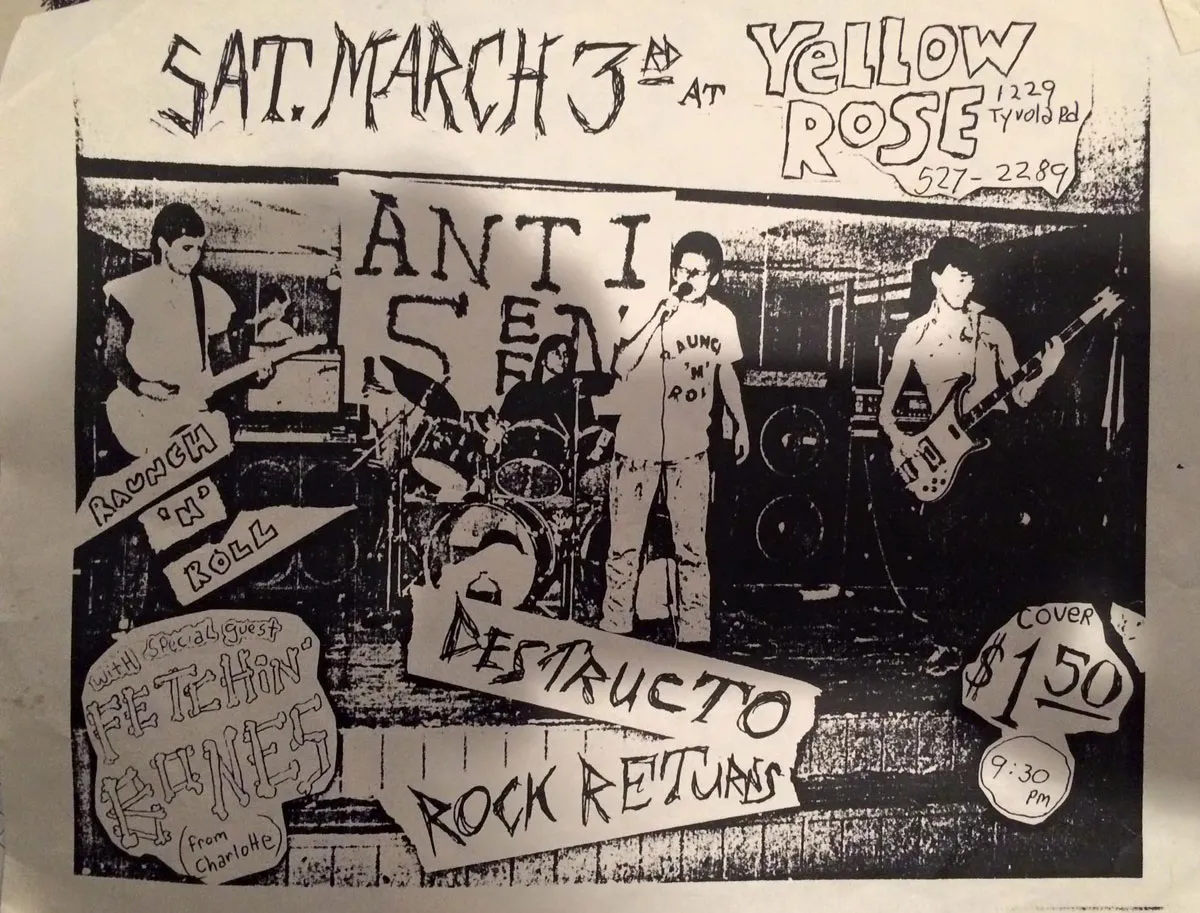 SAT. MARCH 3RD AT
YELLOW
ROSE
1229
Tyvola Rd
527-2289
ANTI
SEEN
RAUNCH
'N'
ROLL
RAUNCH
'N'
ROLL
WITH SPECIAL guest
FETCHIN'
BONES
(from
Charlotte)
DESTRUCTO
ROCK RETURNS
COVER
$1.50
9:30
PM